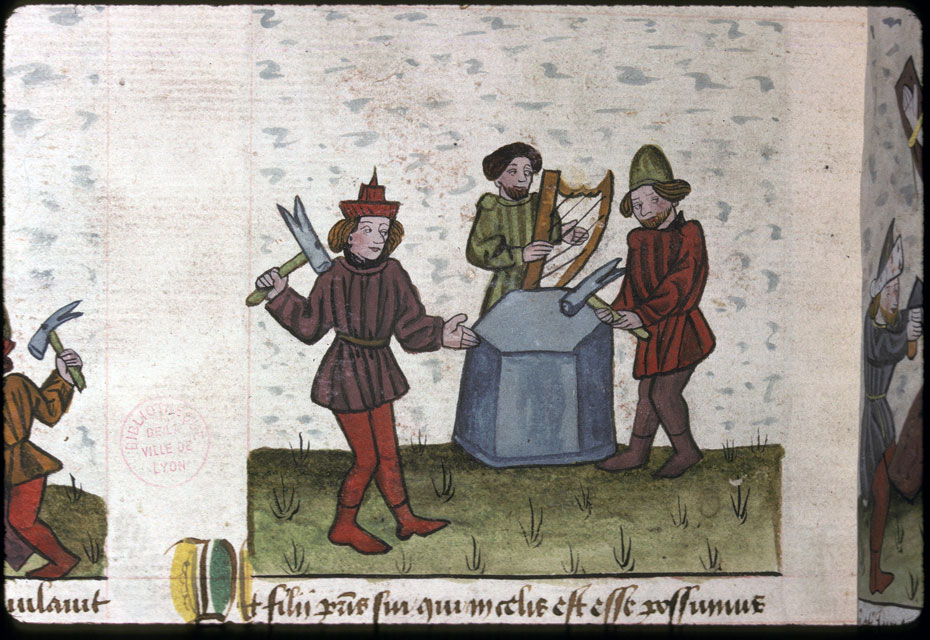 BIBLIOTHE
DE LA
VILLE DE
LYON
Ut filii pr̄is sui qui in celis est esse possumus